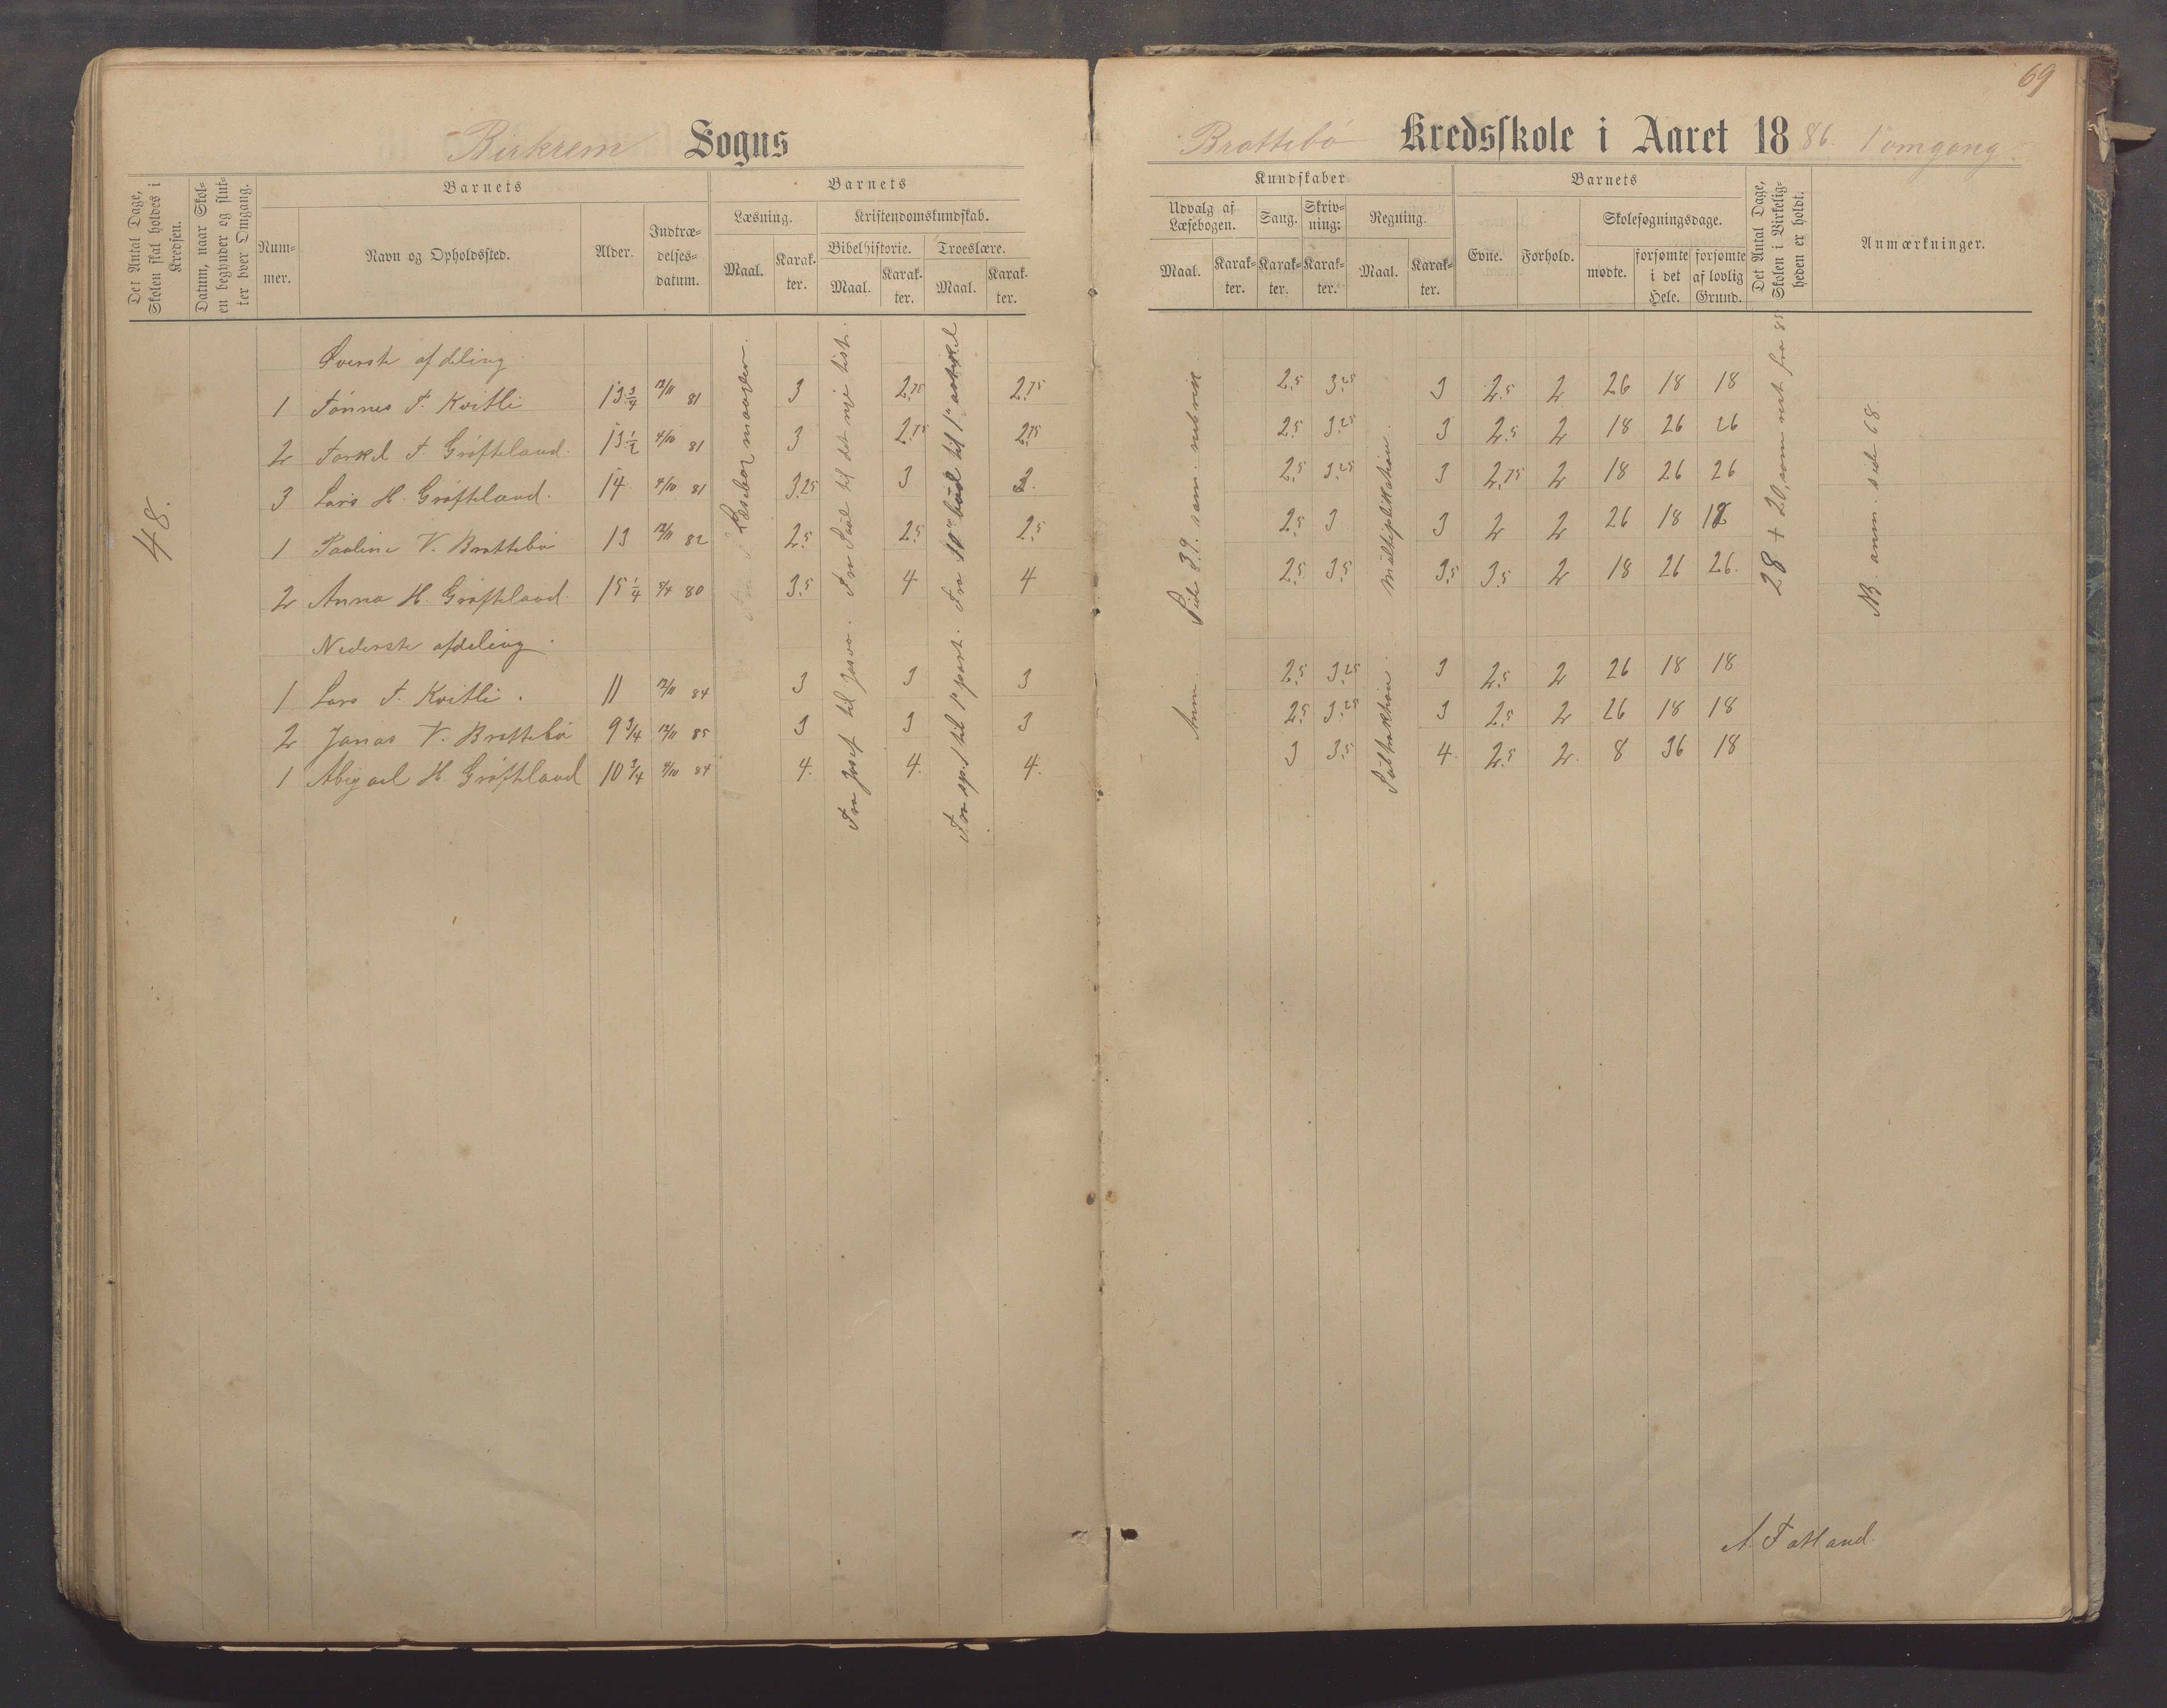 69
Birkrem Sogns
Brattebö Kredsskole i Aaret 1886. 1 omgang.
Det Antal Dage, Skolen skal holdes i Kredsen.
Datum, naar Skolen begynder og slutter hver Omgang.
Barnets
Nummer.
Navn og Opholdssted.
Alder.
Indtrædelsesdatum.
Barnets
Læsning.
Maal.
Karakter.
Kristendomskundskab.
Bibelhistorie.
Maal.
Karakter.
Troeslære.
Maal.
Karakter.
Kundskaber
Udvalg af Læsebogen.
Maal.
Karakter.
Sang.
Karakter.
Skrivning:
Karakter.
Regning.
Maal.
Karakter.
Barnets
Evne.
Forhold.
Skolesøgningsdage.
mødte.
forsømte i det Hele.
forsømte af lovlig Grund.
Det Antal Dage, Skolen i Virkeligheden er holdt.
Anmærkninger.
48.
Øverste afdeling
1 Tönnes T. Kvitli 13 3/4 12/11 81 3 2.75 2.75 2.5 3.25 3 2.5 2 26 18 18
2 Torkel T Gröfteland. 13 1/2 4/10 81 3 2.75 2.75 2.5 3.25 3 2.5 2 18 26 26
3 Lars H. Gröfteland. 14 4/10 81 3.25 3 3. 2.5 3.25 3 2.75 2 18 26 26
1 Paaline V. Brattebö 13 12/11 82 2.5 2.5 2.5 2.5 3 3 2 2 26 18 18
2 Anna H. Gröfteland. 15 1/4 5/4 80 3.5 4 4 2.5 3.5 3.5 3.5 2 18 26 26.
Nederste afdeling.
1 Lars T. Kvitli. 11 12/11 84 3 3 3 2.5 3.25 3 2.5 2 26 18 18
2 Jonas V. Brattebö 9 3/4 12/11 85 3 3 3 2.5 3.25 3 2.5 2 26 18 18
1 Abigael H. Gröfteland 10 3/4 4/10 84 4. 4. 4. 3 3.5 4. 2.5 2. 8 36 18
Læsebog
Fra Josef til Josva. Fra Saul til det nye test.
Fra sp. 1 til 1e part. Fra 10de bud til 1e artikel
Anm. Side 39. sam. rubrik
Subtraktion. Multiplikation.
28 + 20, som rest fra 85
NB. anm. side 68.
A Tatland.